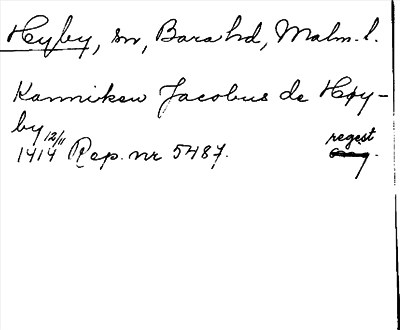 Hyby, sn, Bara hd, Malm. l.
Kanniken Jacobus de Høy-
by 12/11
1414 Rep. nr 5487. regest